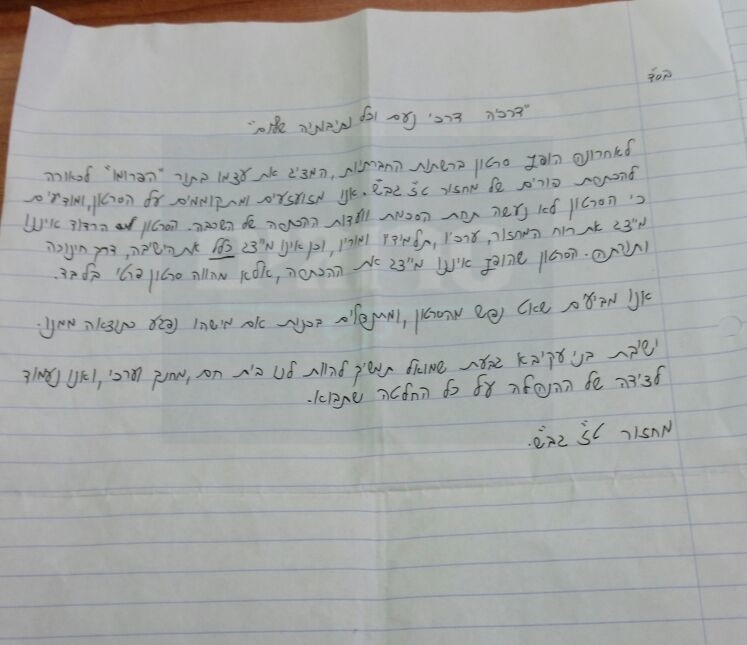 בס"ד
"דרכיה דרכי נעם וכל נתיבותיה שלום"
לאחרונה הופץ סרטון ברשתות החברתיות, המציג את עצמו בתור "הפרומו" לכאורה
להכתסת פורים של מחזור ט"ז גבש. אנו מזועזעים ומתקוממים על הסרטון, ומודיעים
כי הסרטון לא נעשה תחת הסכמת וועדות ההכתסה של השכבה. הסרטון הרדוד איננו
מייצג את רוח המחזור, ערכיו, תלמידיו ומוריו, וכן אינו מייצג כלל את הישיבה, דרך חינוכה
ותורתה. הסרטון שהופץ איננו מייצג את ההכתסה, אלא מהווה סרטון פרטי בלבד.
אנו מביעים שאט נפש מהסרטון, ומתנצלים בכנות אם מישהו נפגע כתוצאה ממנו.
ישיבת בני עקיבא גבעת שמואל תמשיך להוות לנו בית חם, מחנך וערכי, ואנו נעמוד
לצידה של ההנהלה על כל החלטה שתבוא.
מחזור ט"ז גבש.